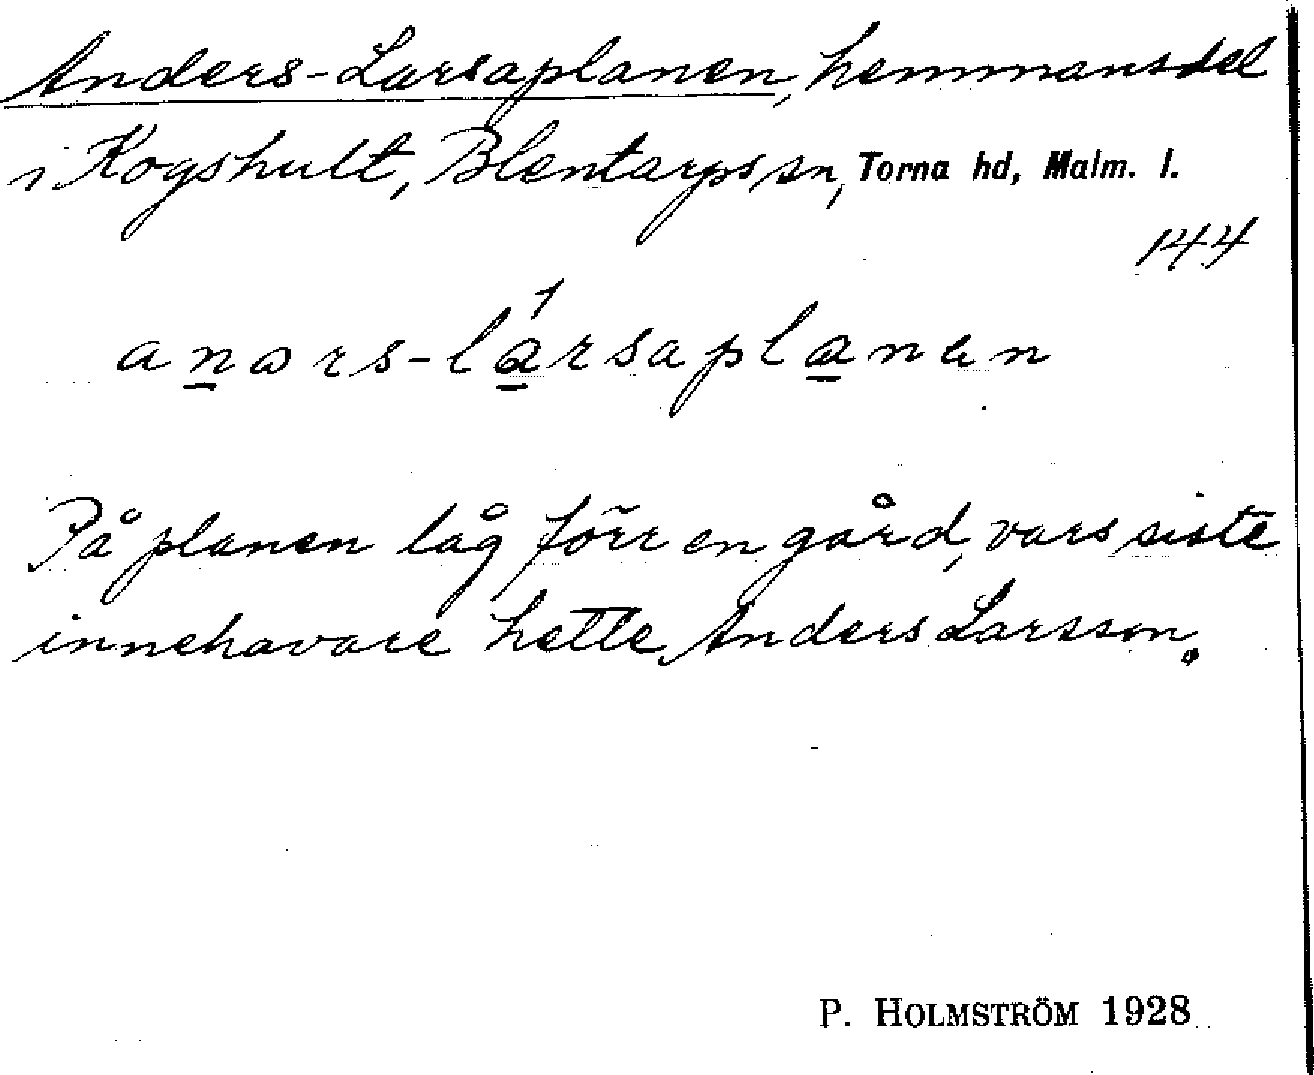 Anders-Larsaplanen, hemmansdel
i Kogshult, Blentarps sn, Torna hd, Malm. l.
144
a n̲ ə r s - l á̲ r s a p l a̲ n ə n
På planen låg förr en gård, vars siste
innehavare hette Anders Larsson.
P. HOLMSTRÖM 1928